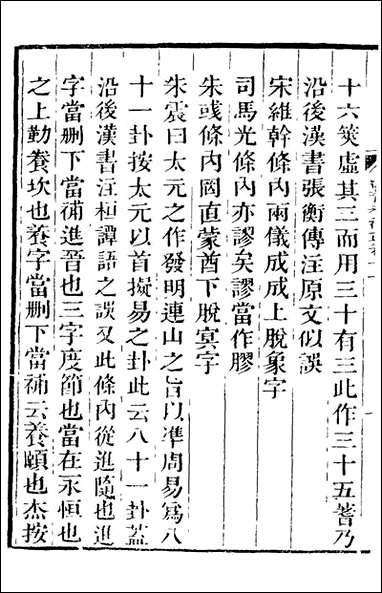 十六筴虛其三而用三十有三此作三十五蓍乃
沿後漢書張衡傳注原文似誤
宋維幹條內兩儀成成上脫象字
司馬光條內亦謬矣謬當作膠
朱彧條內罔直蒙酋下脫冥字
朱震曰太元之作發明連山之旨以準周易爲八
十一卦按太元以首擬易之卦此云八十一卦蓋
沿後漢書注桓譚語之誤又此條內從進隨也進
字當刪下當補進晉也三字度節也當在永恒也
之上勤養坎也養字當刪下當補云養頤也杰按